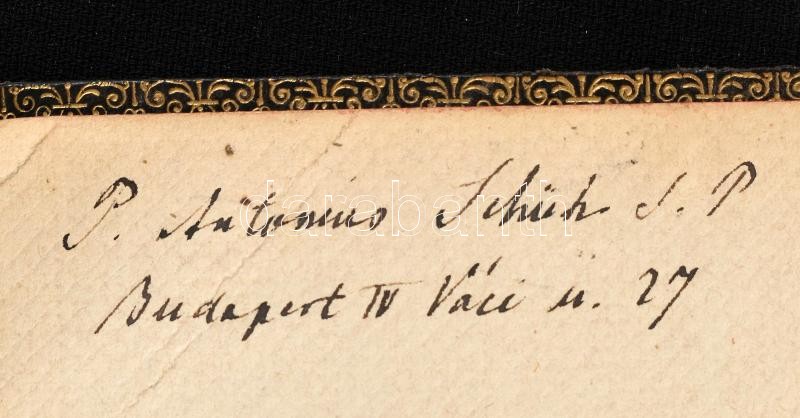 P. Antonius Schüch S. P
darabanth
Budapest IV Váci u. 27